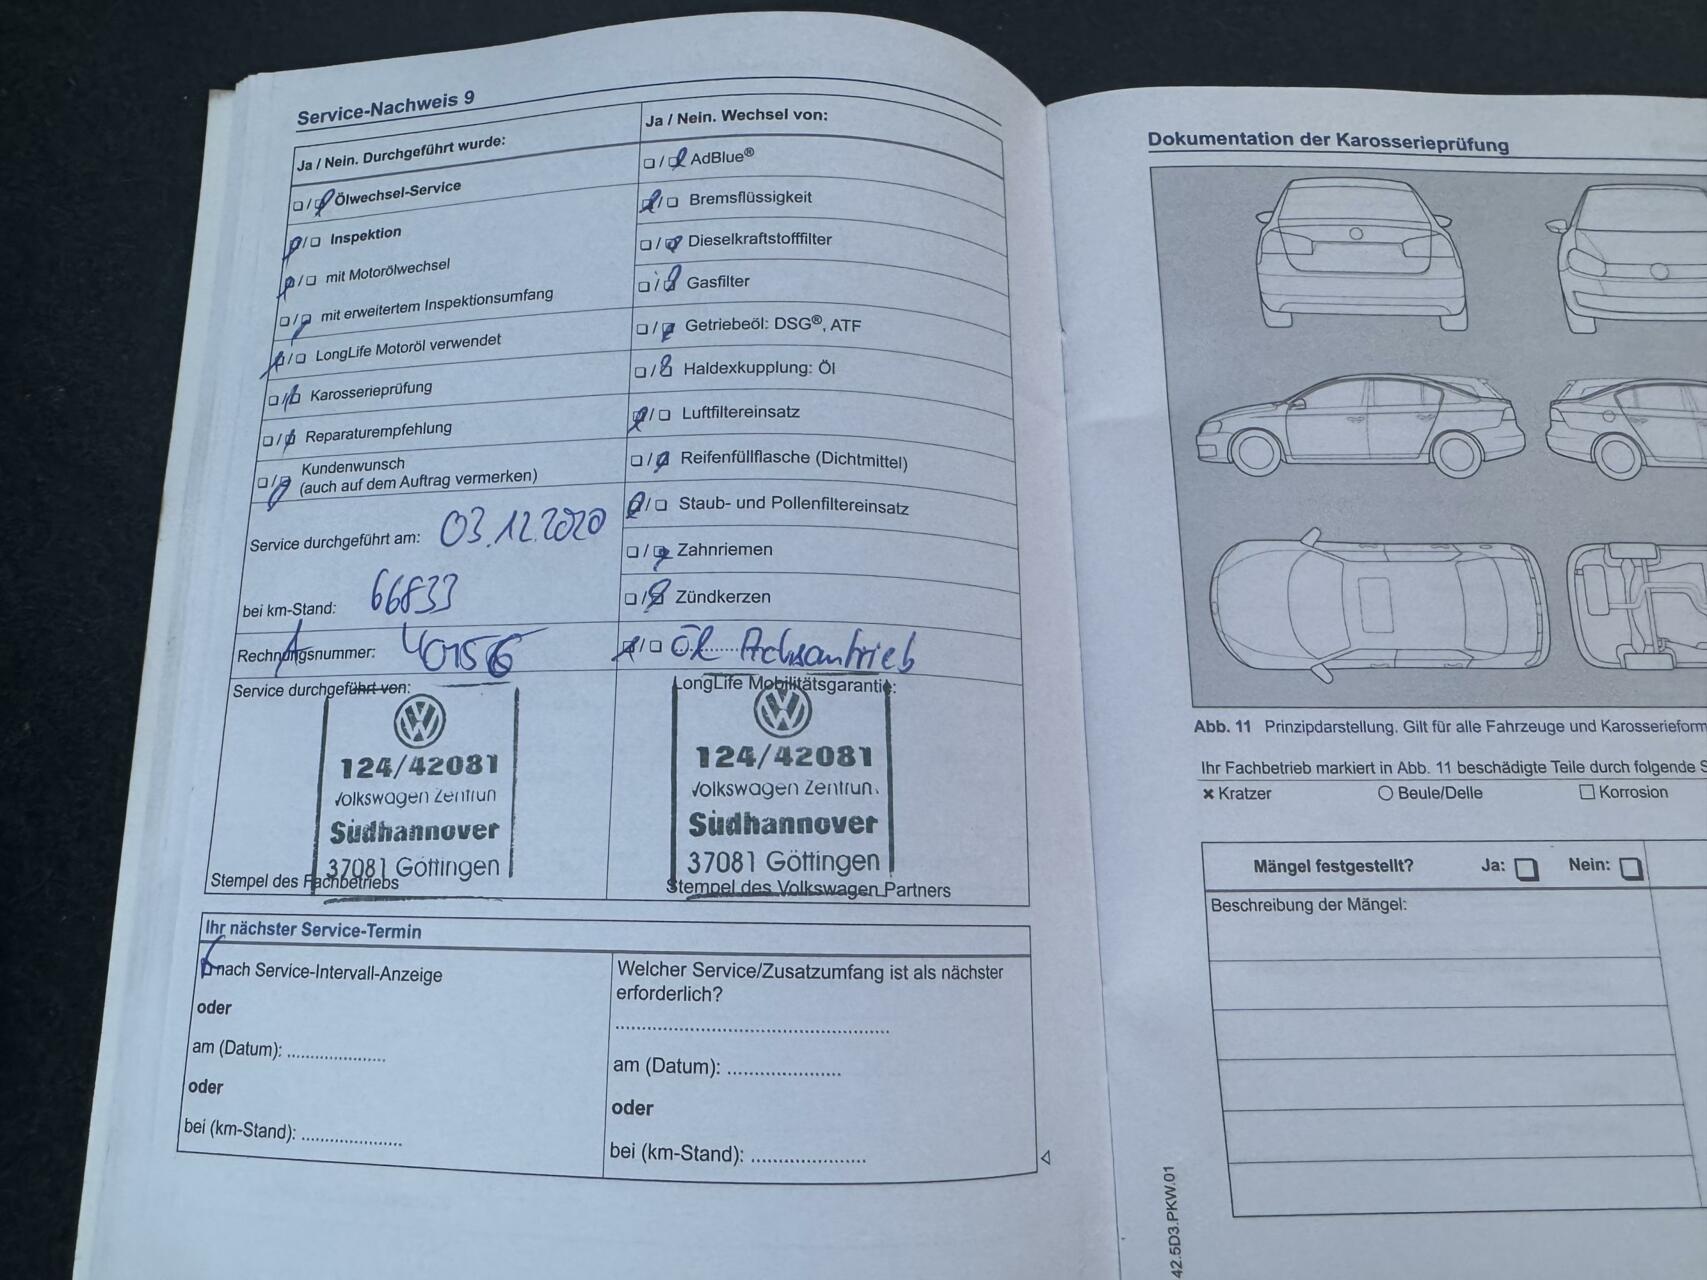 Service-Nachweis 9
Ja / Nein. Durchgeführt wurde:
☐/☐ Ölwechsel-Service
☐/☐ Inspektion
☐/☐ mit Motorölwechsel
☐/☐ mit erweitertem Inspektionsumfang
☐/☐ LongLife Motoröl verwendet
☐/☐ Karosserieprüfung
☐/☐ Reparaturempfehlung
☐/☐ Kundenwunsch
(auch auf dem Auftrag vermerken)
Service durchgeführt am: 03.12.2020
bei km-Stand: 66833
Rechnungsnummer: 40156
Ja / Nein. Wechsel von:
☐/☐ AdBlue®
☐/☐ Bremsflüssigkeit
☐/☐ Dieselkraftstofffilter
☐/☐ Gasfilter
☐/☐ Getriebeöl: DSG®, ATF
☐/☐ Haldexkupplung: Öl
☐/☐ Luftfiltereinsatz
☐/☐ Reifenfüllflasche (Dichtmittel)
☐/☐ Staub- und Pollenfiltereinsatz
☐/☐ Zahnriemen
☐/☐ Zündkerzen
☐/☐ Öl Achsantrieb
Service durchgeführt von:
124/42081
Volkswagen Zentrum
Südhannover
37081 Göttingen
Stempel des Fachbetriebs
LongLife Mobilitätsgarantie:
124/42081
Volkswagen Zentrum
Südhannover
37081 Göttingen
Stempel des Volkswagen Partners
Ihr nächster Service-Termin
☐ nach Service-Intervall-Anzeige
oder
am (Datum): ....................
oder
bei (km-Stand): ....................
Welcher Service/Zusatzumfang ist als nächster
erforderlich?
......................................................
am (Datum): ......................
oder
bei (km-Stand): ......................
Dokumentation der Karosserieprüfung
Abb. 11 Prinzipdarstellung. Gilt für alle Fahrzeuge und Karosserieform
Ihr Fachbetrieb markiert in Abb. 11 beschädigte Teile durch folgende S
✖ Kratzer ○ Beule/Delle ☐ Korrosion
Mängel festgestellt? Ja: ☐ Nein: ☐
Beschreibung der Mängel:
42.5D3.PKW.01